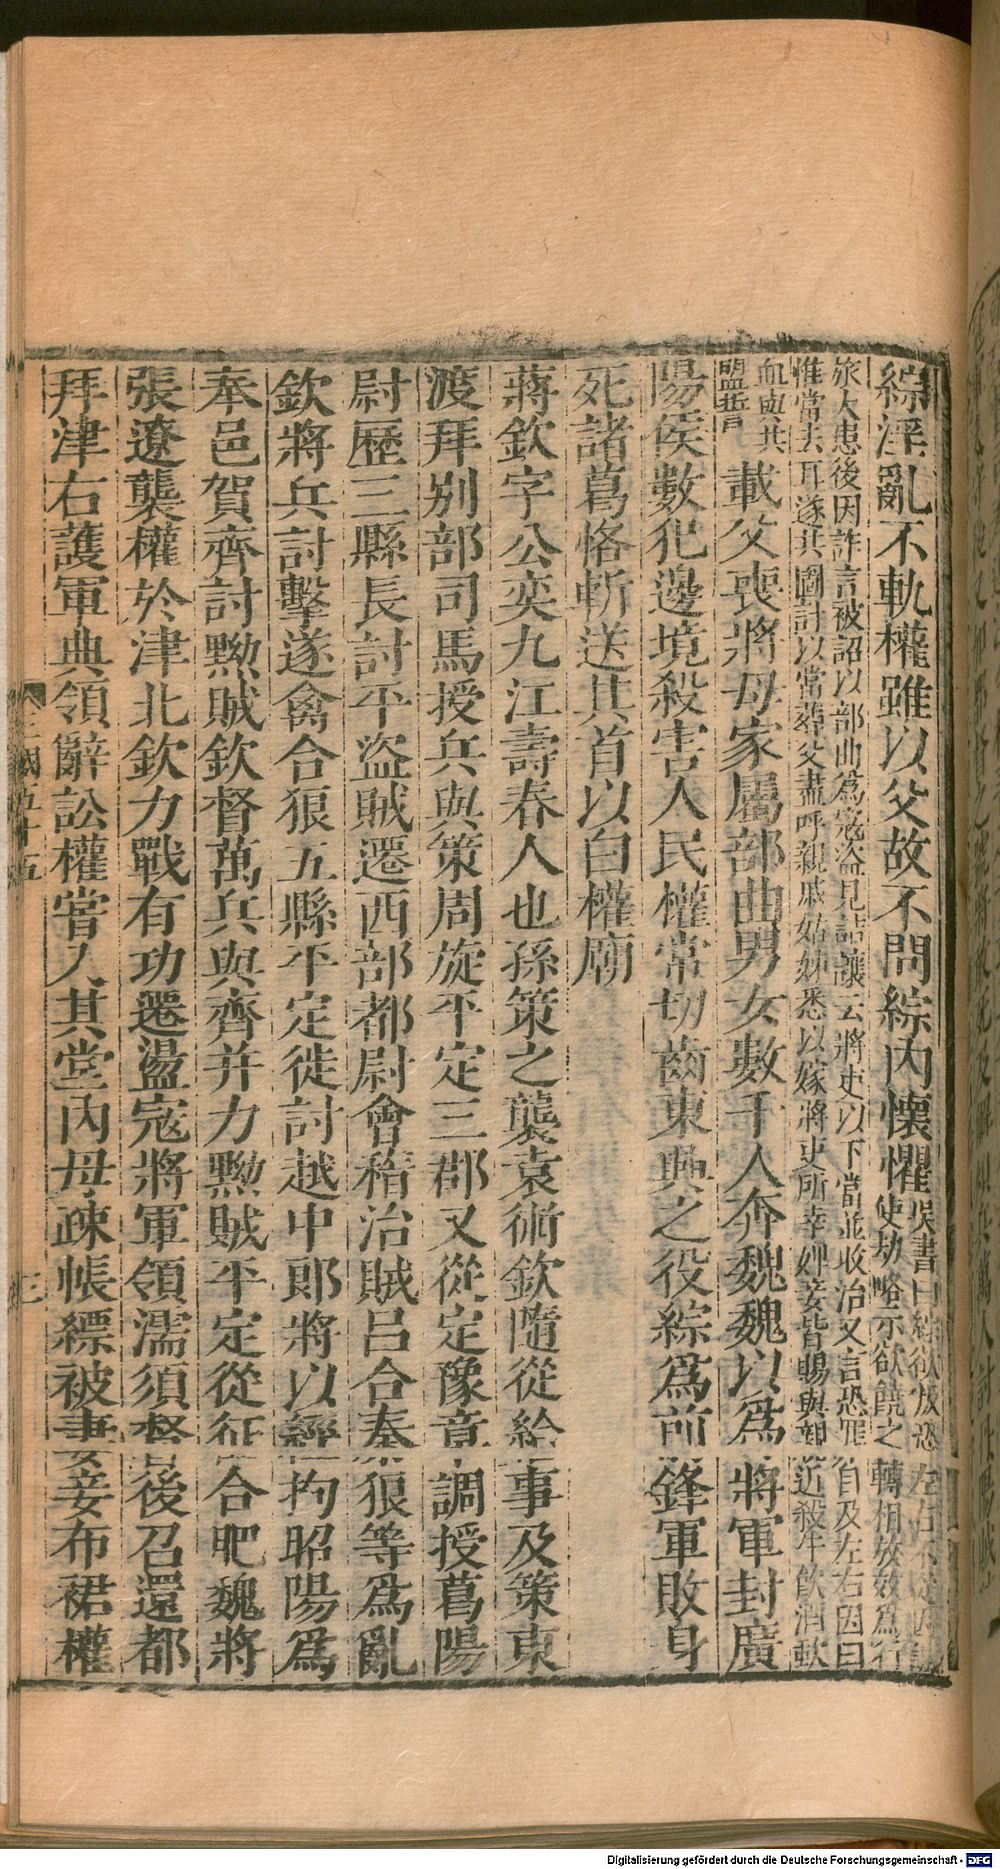 綜淫亂不軌權雖以父故不問綜內懷懼吳書曰綜欲叛恐左右不從因諷
使劫略示欲饒之轉相放效爲行
旅大患後因詐言被詔以部曲爲寇盜見詰讓云將吏以下當並收治又言恐罪自及左右因曰
惟當去耳遂共圖計以當葬父盡呼親戚姑姊悉以嫁將吏所幸婢妾皆賜與親近殺牛飲酒歃
血與共
盟誓
載父喪將母家屬部曲男女數千人奔魏魏以爲將軍封廣
陽侯數犯邊境殺害人民權常切齒東興之役綜爲前鋒軍敗身
死諸葛恪斬送其首以白權廟
蔣欽字公奕九江壽春人也孫策之襲袁術欽隨從給事及策東
渡拜別部司馬授兵與策周旋平定三郡又從定豫章調授葛陽
尉歷三縣長討平盜賊遷西部都尉會稽治賊呂合秦狼等爲亂
欽將兵討擊遂禽合狼五縣平定徙討越中郎將以經拘昭陽爲
奉邑賀齊討黟賊欽督萬兵與齊并力黟賊平定從征合肥魏將
張遼襲權於津北欽力戰有功遷盪寇將軍領濡須督後召還都
拜津右護軍典領辭訟權嘗入其堂內母疎帳縹被妻妾布裙權
三國五十五
三
Digitalisierung gefördert durch die Deutsche Forschungsgemeinschaft - DFG